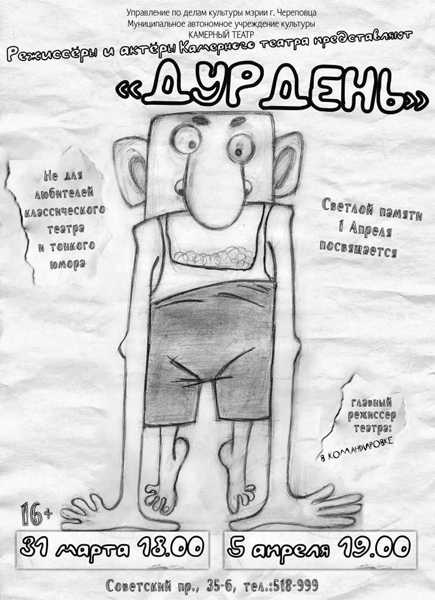 Управление по делам культуры мэрии г. Череповца
Муниципальное автономное учреждение культуры
КАМЕРНЫЙ ТЕАТР
Режиссёры и актёры Камерного театра представляют
«ДУРДЕНЬ»
Не для
любителей
классического
театра
и тонкого
юмора
Светлой памяти
1 Апреля
посвящается
главный
режиссер
театра:
в командировке
16+
31 марта 18.00
5 апреля 19.00
Советский пр., 35-б, тел.:518-999